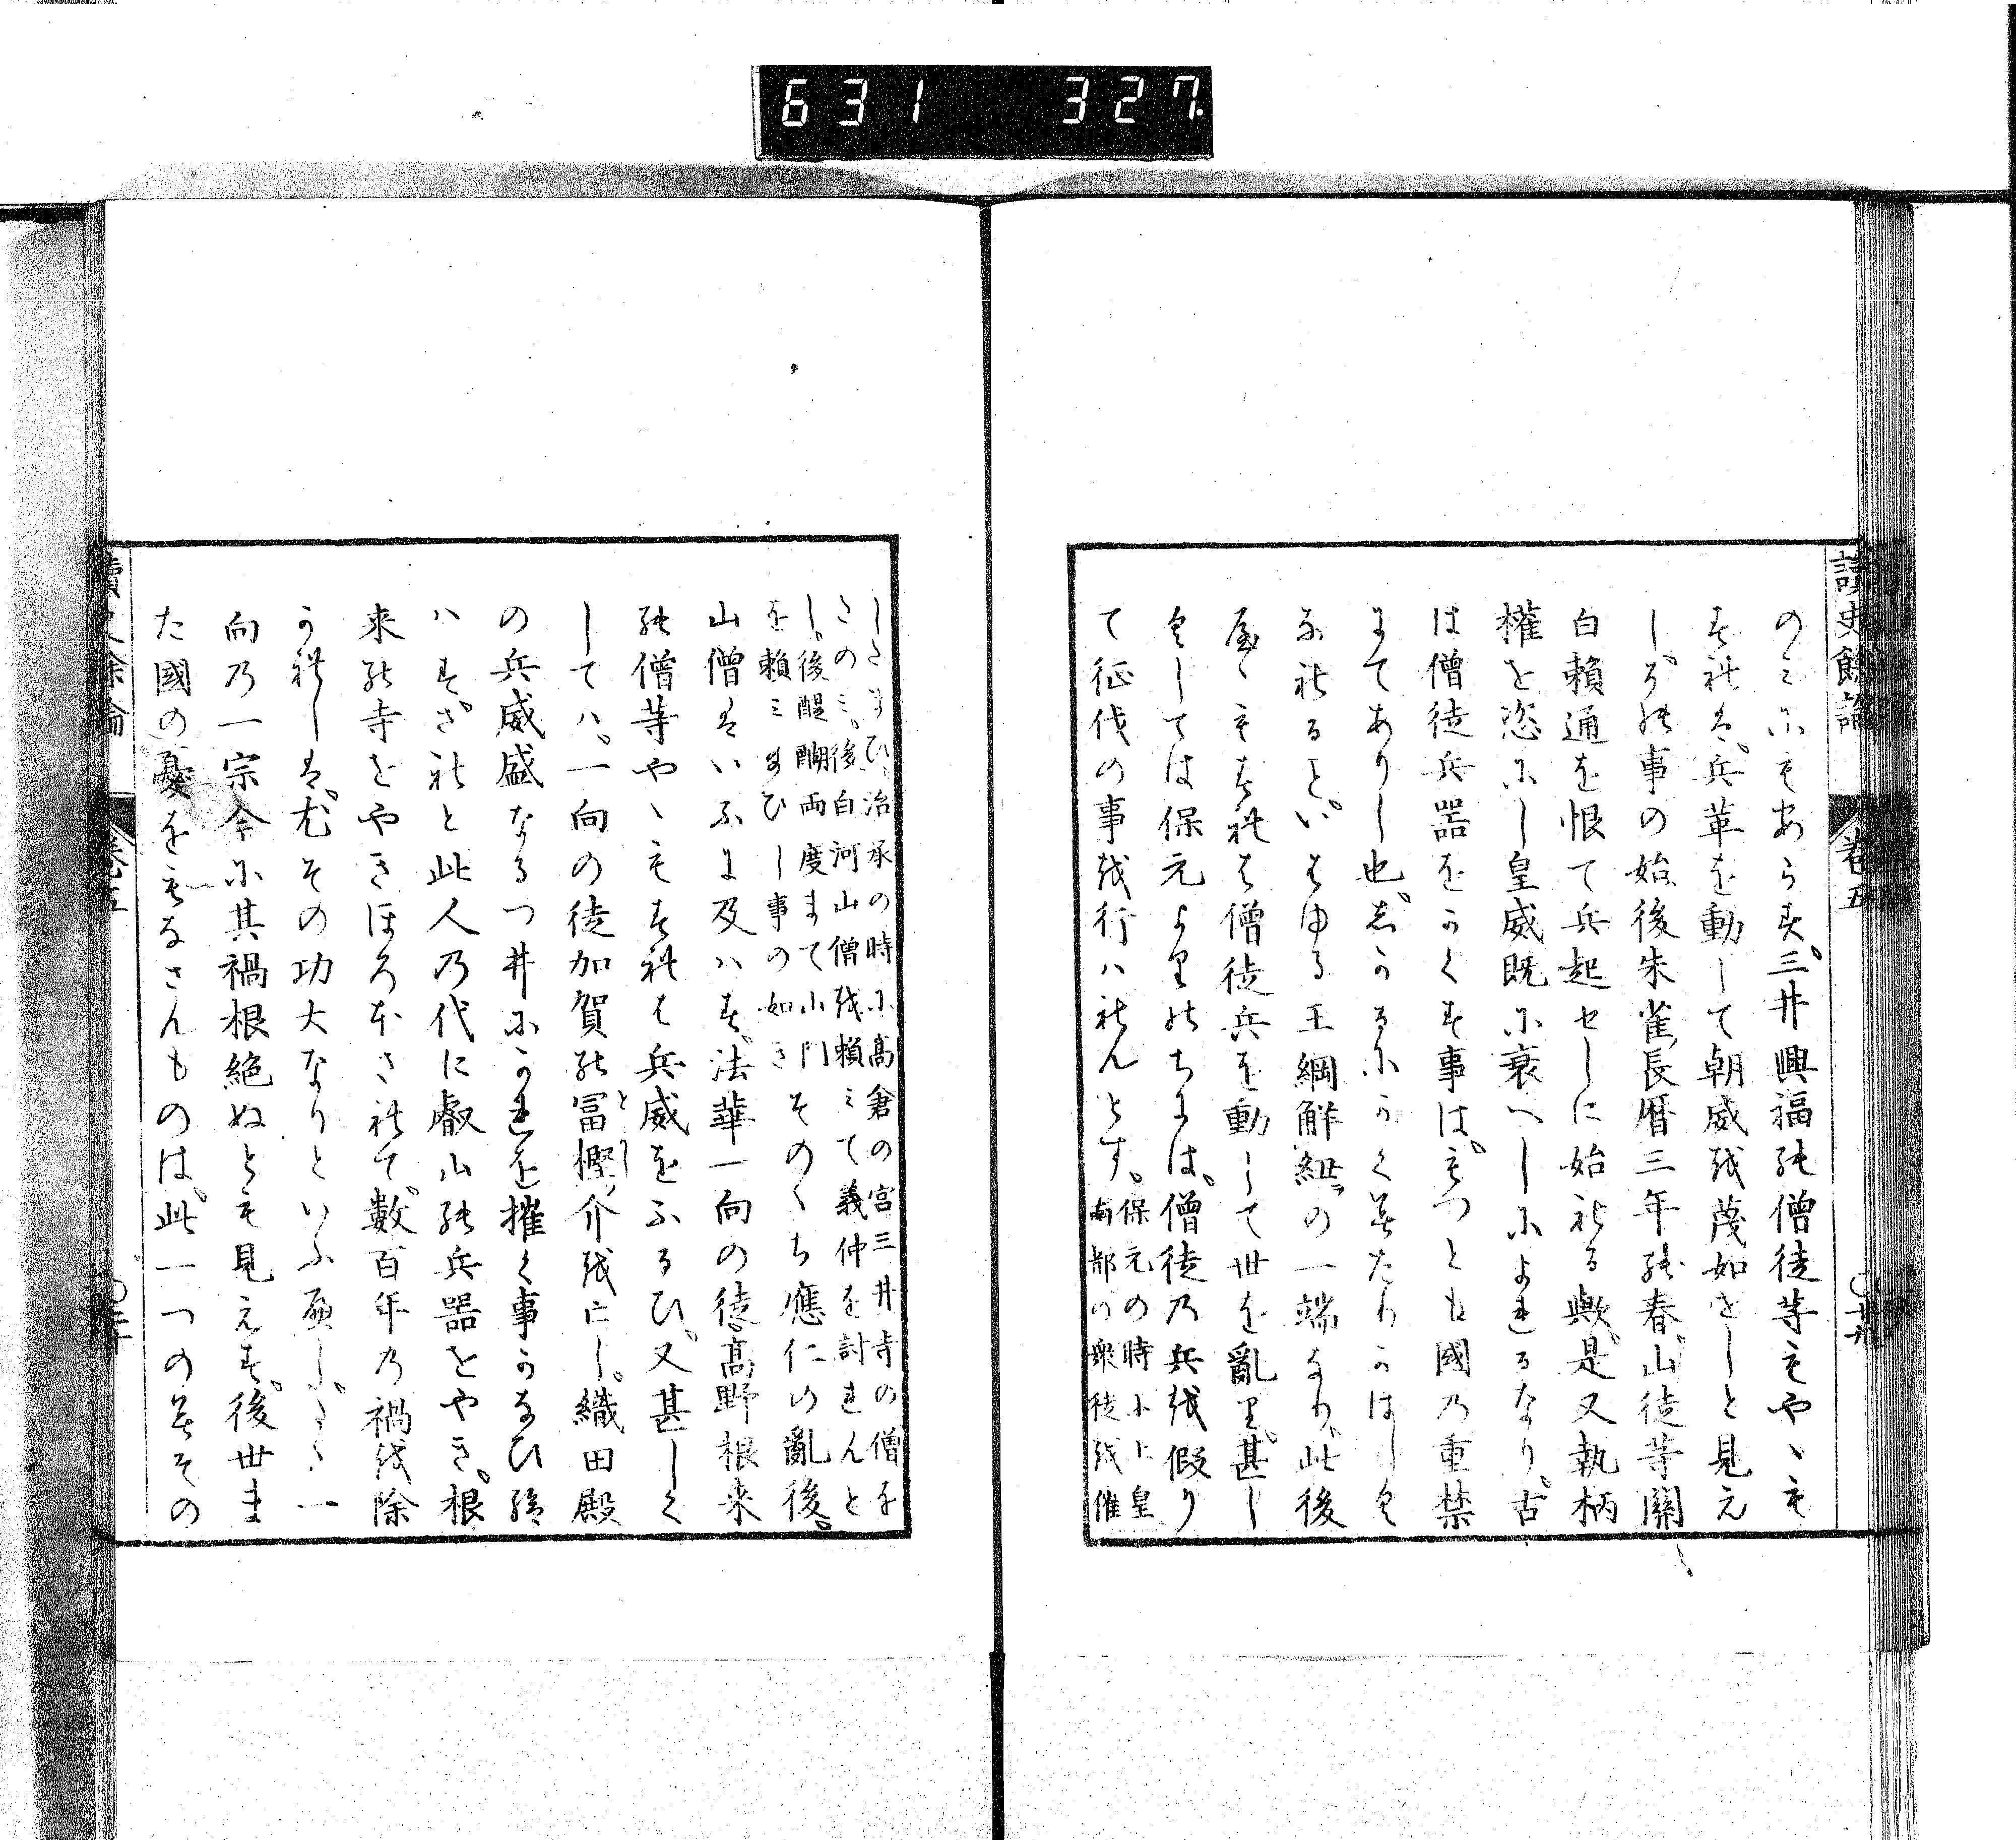 631 327
讀史餘論 卷五 〇廿九
のミにもあらす。三井興福の僧徒等もやゝも
すれは、兵革を動して朝威を蔑如せしと見え
し、其事の始、後朱雀、長暦三年の春、山徒等關
白賴通を恨て兵起セしに始れる歟、是又執柄
權を恣にし皇威既に衰へしによれるなり、古
は僧徒兵器をかくす事は、もつとも國の重禁
にてありし也、しかるにかくなりたりかはしく
なれると、いはゆる王綱解紐の一端なり、此後
屡〻もすれは僧徒兵を動して世を亂り、甚し
くしては保元よりのちには、僧徒の兵を假り
て征伐の事を行ハれんとす。保元の時に上皇
南都の衆徒を催
しさまひ、治承の時に高倉の宮三井寺の僧を
さのミ、後白河山僧を賴ミて義仲を討れんと
し。後醍醐両度まて山門
を賴ミまひし事の如き
そのゝち應仁の亂後。
山僧はいふに及ハす、法華一向の徒、高野根来
の僧等やゝもすれは兵威をふるひ、又甚しく
してハ。一向の徒加賀の冨樫介を亡し。織田殿
の兵威盛なるつ井にこれを摧く事かなひ給
ハす、されと此人の代に叡山の兵器をやき。根
来の寺をやきほろほされて、数百年の禍を除
かれしは、尤その功大なりといふへし、たゝ一
向の一宗今に其禍根絶ぬとも見えす、後世ま
た國の憂をもなさんものは、此一つのミその
讀史餘論 卷五 〇三十